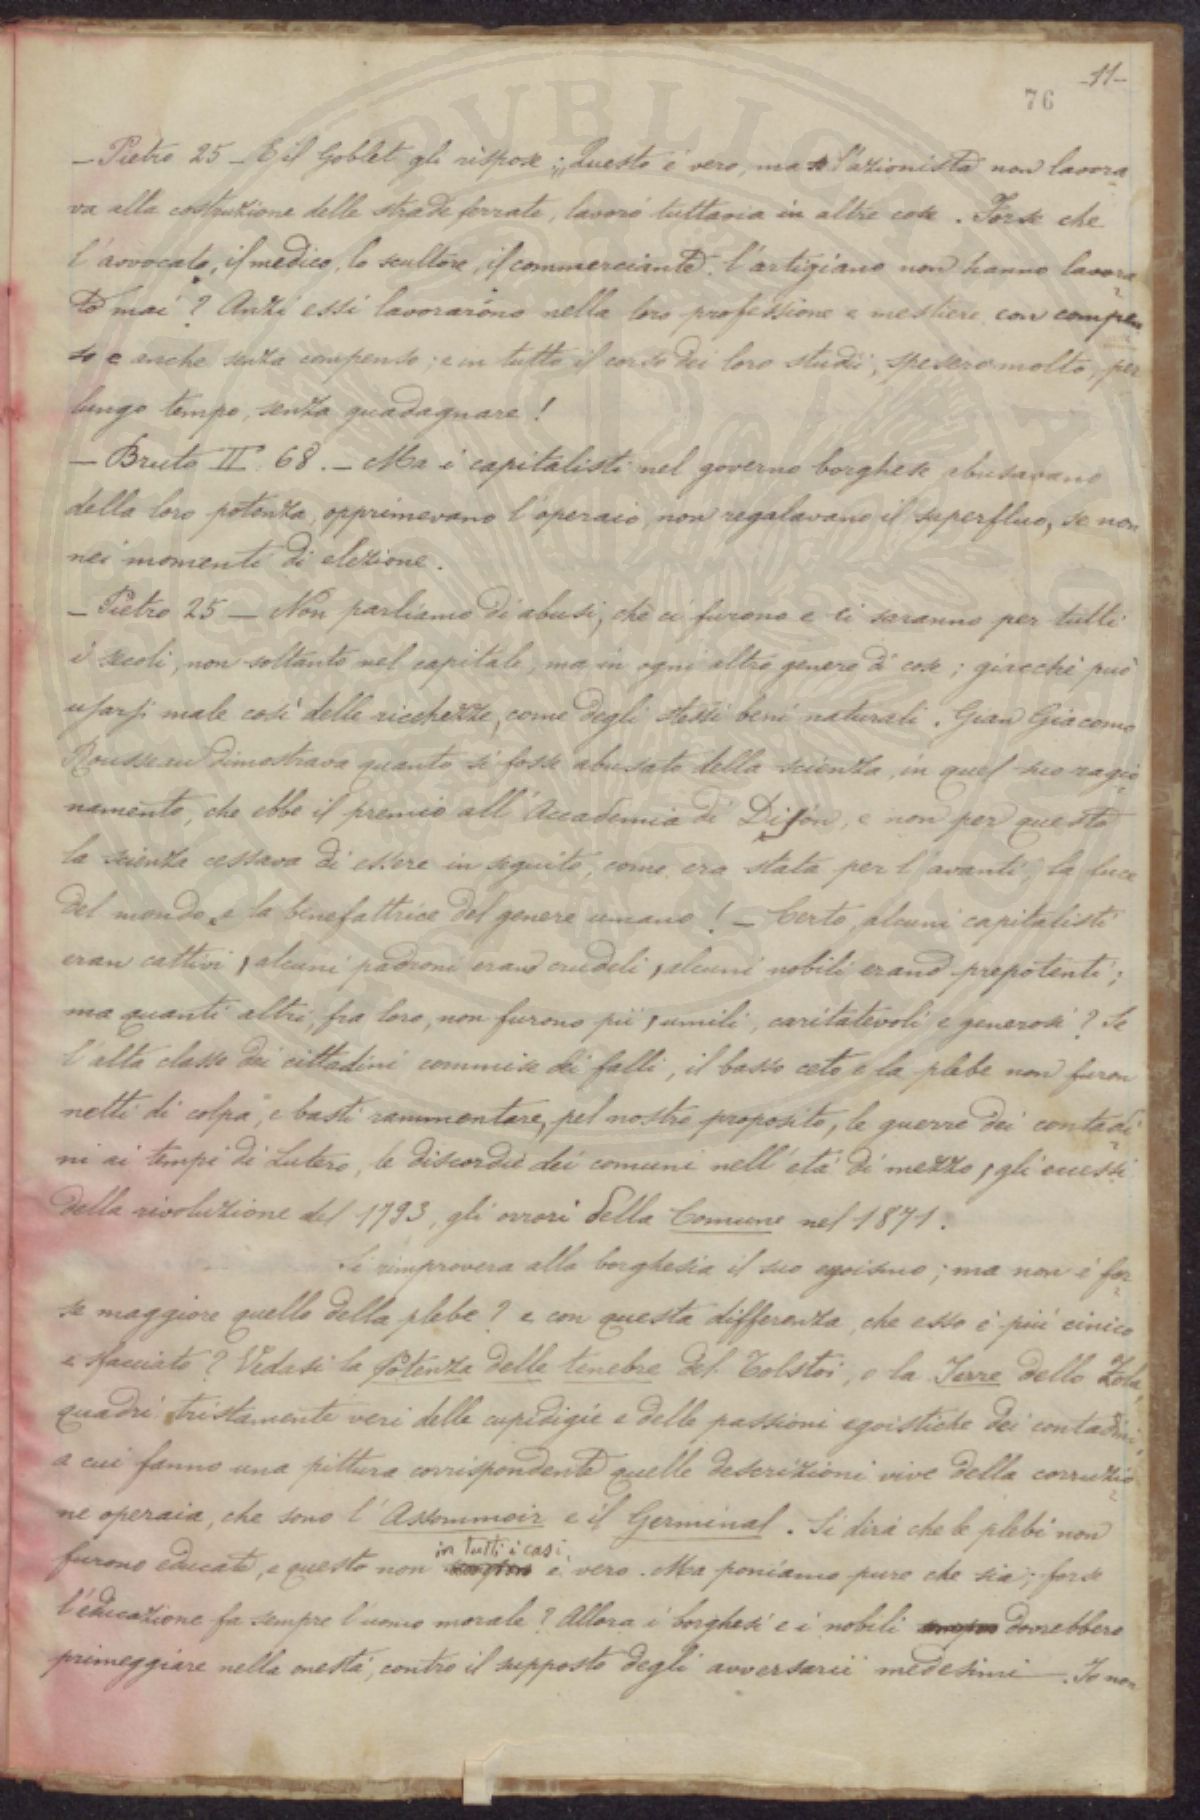 -11-
76
— Pietro 25 — E il Goblet gli rispose: „Questo è vero, ma se l'azionista non lavora
va alla costruzione delle strade ferrate, lavorò tuttavia in altre cose. Forse che
l'avvocato, il medico, lo scultore, il commerciante, l'artigiano non hanno lavora
to mai? Anzi essi lavorarono nella loro professione e mestiere con compen
so e anche senza compenso; e in tutto il corso dei loro studii, spesero molto, per
lungo tempo, senza guadagnare!
— Bruto II 68. — Ma i capitalisti nel governo borghese abusavano
della loro potenza, opprimevano l'operaio, non regalavano il superfluo, se non
nei momenti di elezione.
— Pietro 25 — Non parliamo di abusi, che ci furono e ci saranno per tutti
i secoli, non soltanto nel capitale, ma in ogni altro genere di cose; giacchè può
usarsi male così delle ricchezze, come degli stessi beni naturali. Gian Giacomo
Rousseau dimostrava quanto si fosse abusato della scienza, in quel suo ragio
namento, che ebbe il premio all'Accademia di Dijon, e non per questo
la scienza cessava di essere in seguito, come era stata per l'avanti, la luce
del mondo e la benefattrice del genere umano! — Certo, alcuni capitalisti
eran cattivi, alcuni padroni erano crudeli, alcuni nobili erano prepotenti;
ma quanti altri, fra loro, non furono pii, umili, caritatevoli e generosi? Se
l'alta classe dei cittadini commise dei falli, il basso ceto e la plebe non furon
netti di colpa, e basti rammentare, pel nostro proposito, le guerre dei contadi
ni ai tempi di Lutero, le discordie dei comuni nell'età di mezzo, gli eccessi
della rivoluzione del 1793, gli orrori della Comune nel 1871.
Si rimprovera alla borghesia il suo egoismo; ma non è for
se maggiore quello della plebe? e con questa differenza, che esso è più cinico
e sfacciato? Vedasi la Potenza delle tenebre del Tolstoi, o la Terre dello Zola,
quadri tristamente veri delle cupidigie e delle passioni egoistiche dei contadini,
a cui fanno una pittura corrispondente quelle descrizioni vive della corruzio
ne operaia, che sono l'Assommoir e il Germinal. Si dirà che le plebi non
in tutti i casi
furono educate, e questo non è vero. Ma poniamo pure che sia; forse
l'educazione fa sempre l'uomo morale? Allora i borghesi e i nobili dovrebbero
primeggiare nella onestà, contro il supposto degli avversarii medesimi —. Io non